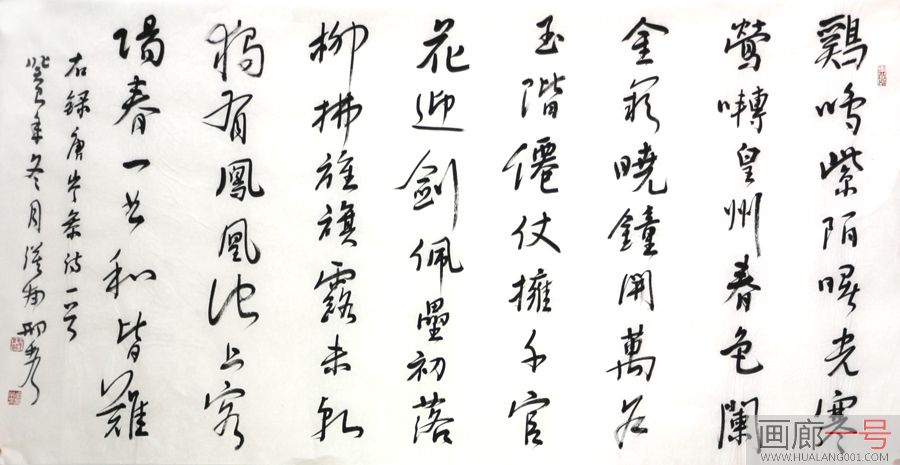 鷄鳴紫陌曙光寒
鶯囀皇州春色闌
金闕曉鐘開萬戶
玉階僊仗擁千官
花迎劍佩曐初落
柳拂旌旗露未乾
獨有鳳凰池上客
陽春一曲和皆難
右錄唐岑參詩一首
年冬月
画廊一号
WWW.HUALANG001.COM